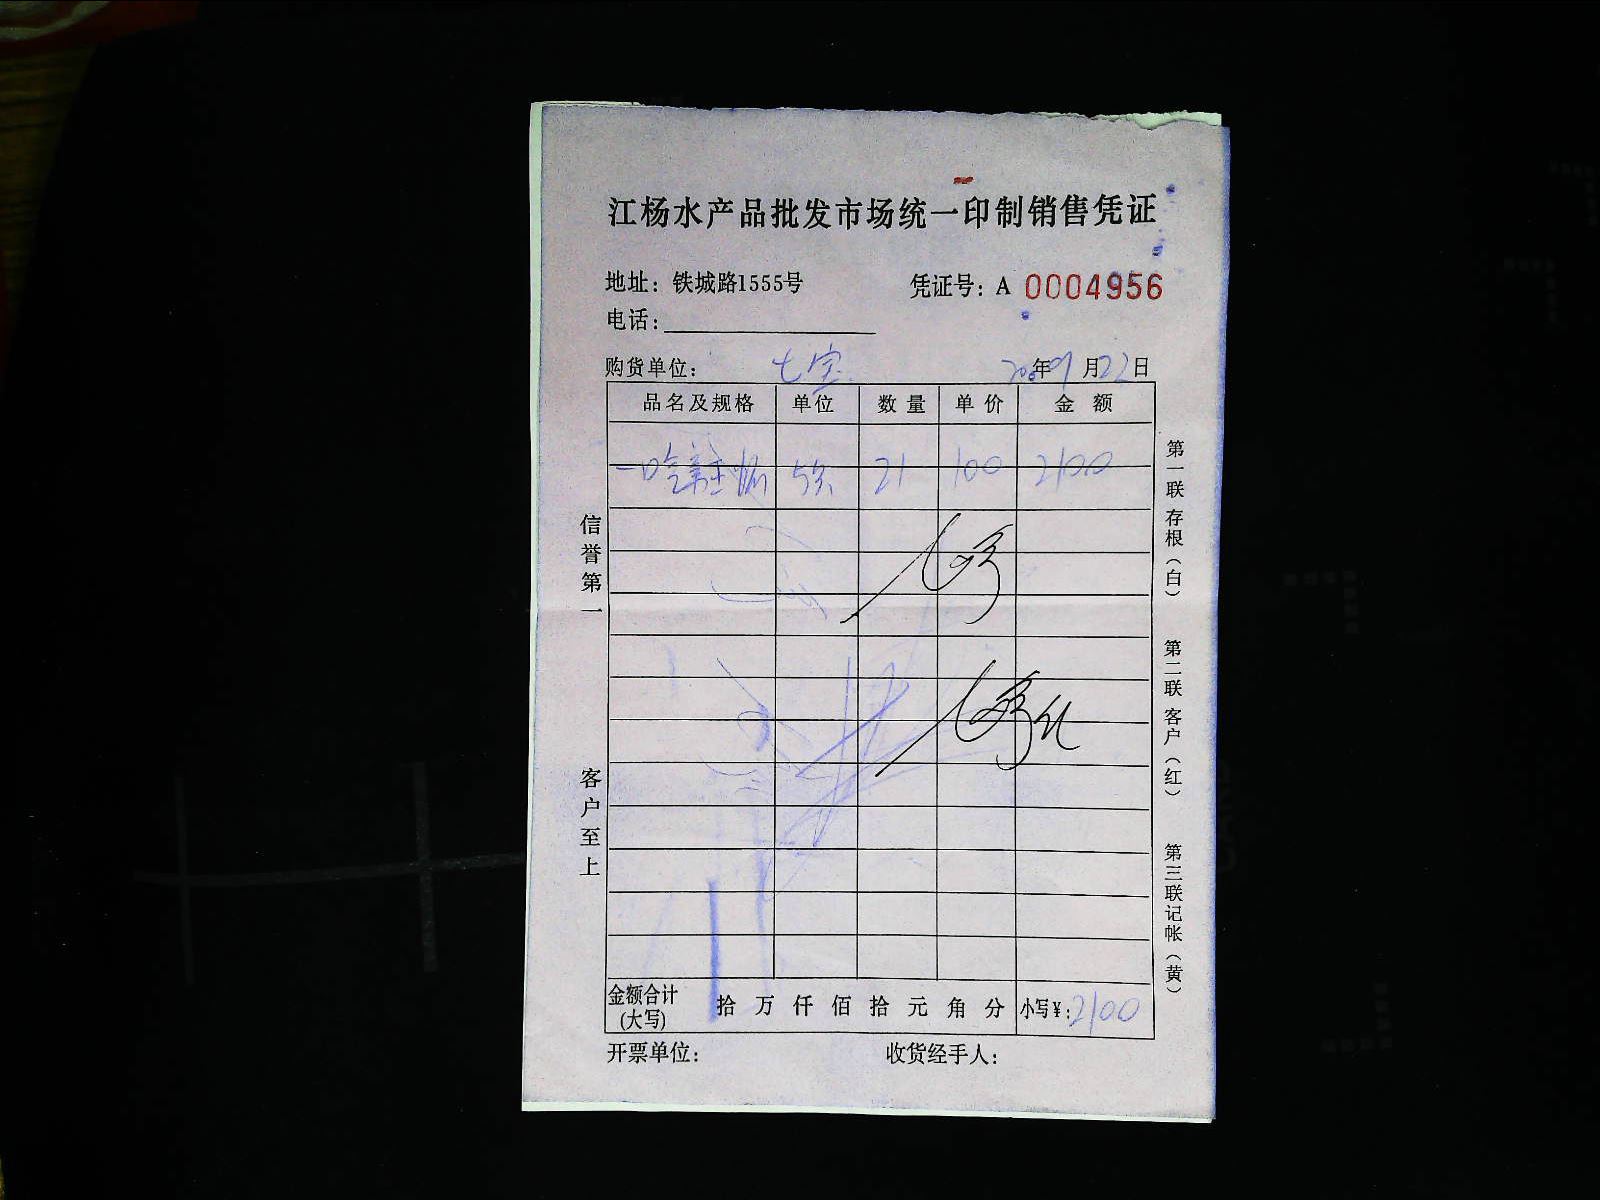 江杨水产品批发市场统一印制销售凭证
地址：铁城路1555号
凭证号：A 0004956
电话：
购货单位： 七宝
年 09 月 22 日
品名及规格 单位 数量 单价 金额
21 100 2100
信誉第一
客户至上
第一联 存根（白）
第二联 客户（红）
第三联 记帐（黄）
金额合计（大写） 拾 万 仟 佰 拾 元 角 分 小写¥：2100
开票单位：
收货经手人：